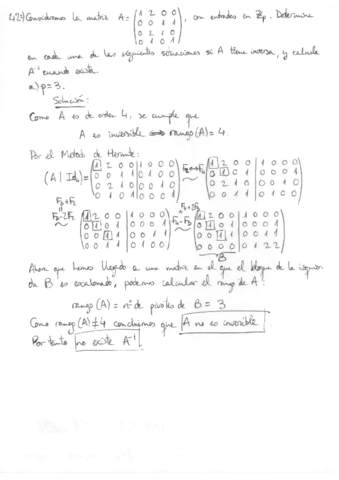 4.24 Consideramos la matriz A = (1 2 0 0 / 0 0 1 1 / 0 2 1 0 / 0 1 0 1), con entradas en ℤp. Determine
en cada una de las siguientes situaciones si A tiene inversa, y calcula
A⁻¹ cuando exista.
a) p=3.
Solución:
Como A es de orden 4, se cumple que
A es invertible ⟺ rango(A)=4.
Por el Método de Hermite:
(A | Id₄) = (1 2 0 0 | 1 0 0 0 / 0 0 1 1 | 0 1 0 0 / 0 2 1 0 | 0 0 1 0 / 0 1 0 1 | 0 0 0 1) ~ (1 2 0 0 | 1 0 0 0 / 0 1 0 1 | 0 0 0 1 / 0 2 1 0 | 0 0 1 0 / 0 0 1 1 | 0 1 0 0)
F₃+F₂
=
F₃-2F₂
~ (1 2 0 0 | 1 0 0 0 / 0 1 0 1 | 0 0 0 1 / 0 0 1 1 | 0 0 1 1 / 0 0 1 1 | 0 1 0 0) ~ (1 2 0 0 | 1 0 0 0 / 0 1 0 1 | 0 0 0 1 / 0 0 1 1 | 0 0 1 1 / 0 0 0 0 | 0 1 2 2)
B
Ahora que hemos llegado a una matriz en el que el bloque de la izquier
da B es escalonado, podemos calcular el rango de A:
rango(A) = nº de pivotes de B = 3
Como rango(A)≠4 concluimos que A no es invertible
Por tanto no existe A⁻¹